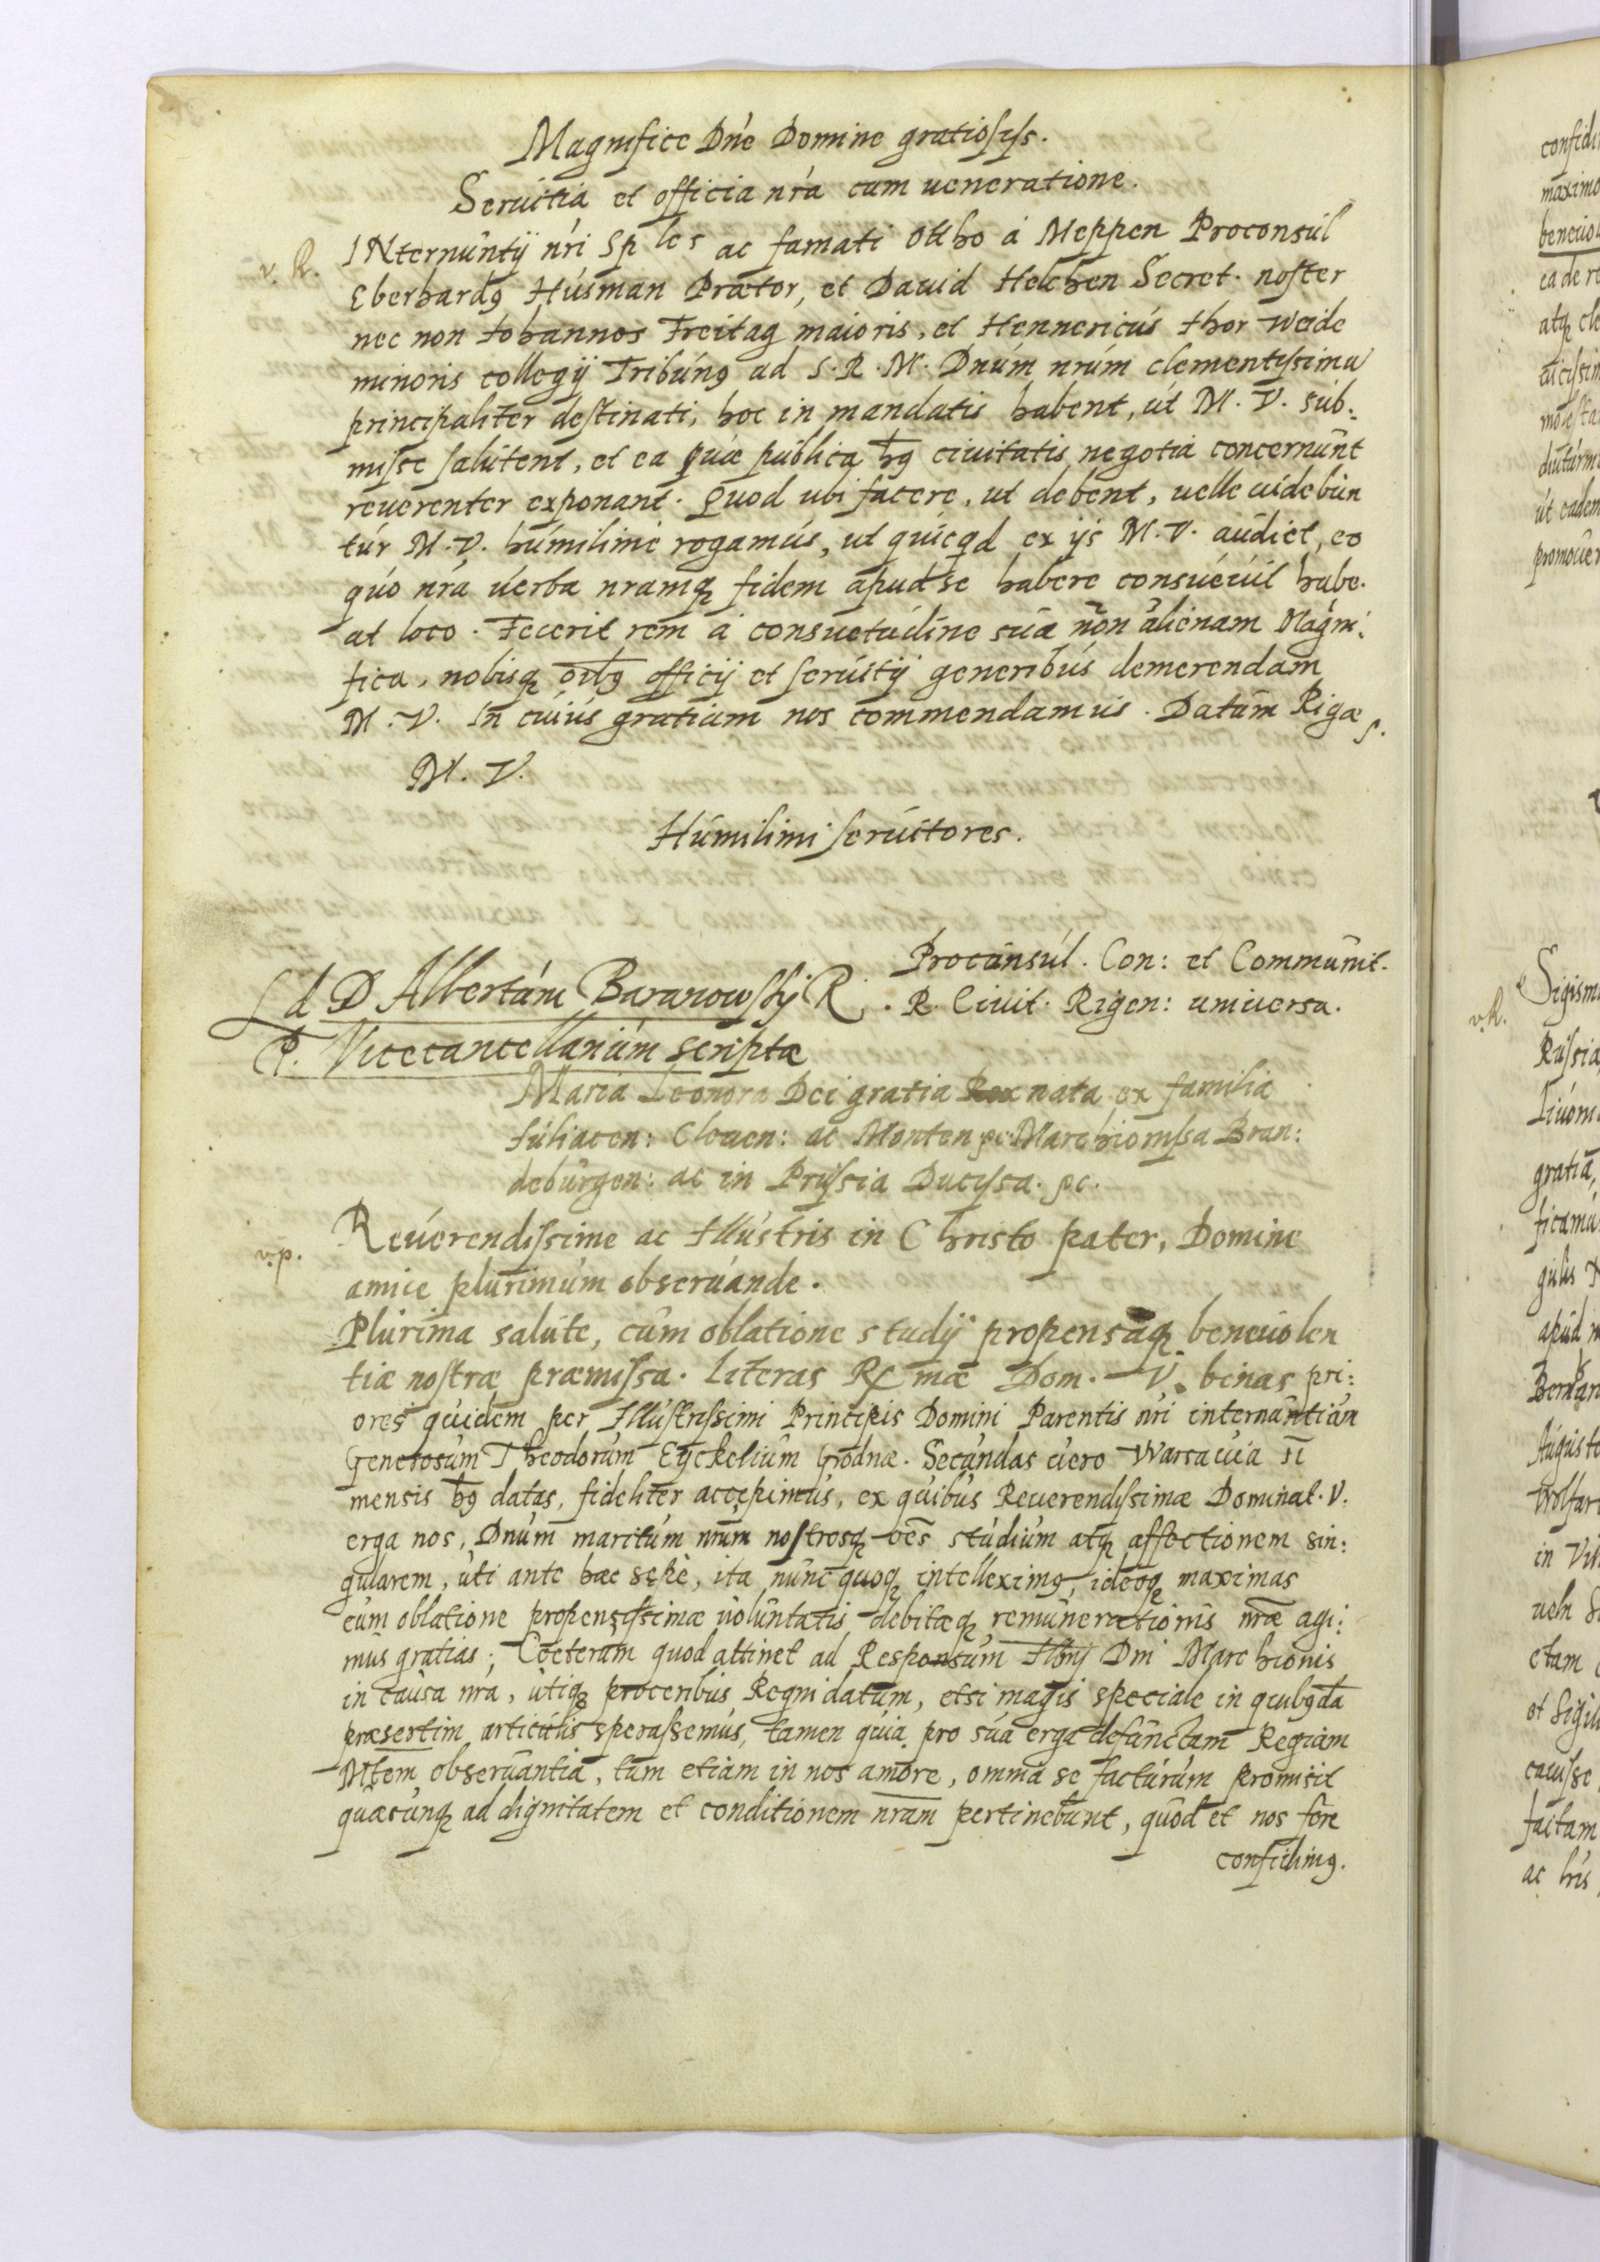 Magnifice Dn̄e Domine gratiosiss.
Seruitia et officia nr̄a cum ueneratione.
v. R.
INternuntÿ nr̄i Sp les ac famati Ottho á Meppen Proconsul
Eberhardꝯ Húsman Prætor, et Dauid Helchen Secret. noster
nec non Iohannes Freitag maioris, et Hennericús thor Weide
minoris collegÿ Tribúnꝯ ad S. R. M. Dnúm nrúm clementissimū
principaliter destinati, hoc in mandatis habent, út M. V. súb-
misse salútent, et ea quæ pública hꝯ ciuitatis negotia concernúnt
reuerenter exponant. Quod ubi facere, ut debent, uelle uidebún
túr M. V. húmilime rogamús, ut quicqd ex ijs M. V. audiet, eo
quo nr̄a uerba nramqꝫ fidem apud se habere consueuit habe-
at loco. Fecerit rem á consuetudine sua non alienam Magni-
fica, nobisqꝫ oībꝯ officij et seruitij generibús demerendam
M. V. In cuiús gratiam nos commendamús. Datúm Rigæ p.
M. V.
Humilimi seruitores.
Procónsúl. Con: et Communit.
R. Ciuit. Rigen: uniuersa.
Ad D Albertúm Baranowskÿ R.
P. Vicecancellariúm scriptæ
Maria Leonora Dei gratia Rex nata ex familia
Iúliacen: Cleuen: ac Monten pc Marchionissa Bran:
debúrgen: ac in Prussia Ducissa. pc.
v. p.
Reúerendissime ac Illústris in Christo pater, Domine
amice plurimúm obseruánde.
Plúrima salúte, cúm oblatione studÿ propensæqꝫ beneuolen
tiæ nostræ præmissa. Literas Rxmæ Dom. V. binas pri:
ores quidem per Illustrissimi Principis Domini Parentis nr̄i internúntiúm
Generosúm Theodorúm Eyckeliúm Grodnæ. Secúndas uero Warsauia II
mensis hꝯ datas, fideliter accepimús, ex quibús Reuerendissimæ Dominat. V.
erga nos, Dnúm maritúm nrúm nostrosqꝫ oēs stúdiúm atqꝫ affectionem sin:
gularem, úti ante hac sępè, ita núnc quoqꝫ intelleximꝯ, ideoqꝫ maximas
cúm oblatione propensissimæ uolúntatis, debitæqꝫ remúnerationis nr̄æ agi:
mús gratias; Cœterúm quod attinet ad Responsúm Illmj Dni Marchionis
in caúsa nr̄a, útiqꝫ proceribús Regni datúm, etsi magis speciale in qúibꝯdā
præsertim articúlis sperassemús, tamen quia pro súa erga defúnctam Regiam
Mtem obseruantia, túm etiam in nos amore, omnia se factúrúm promisit
quæcúnqꝫ ad dignitatem et conditionem nram pertinebúnt, quod et nos fore
confidimꝯ.